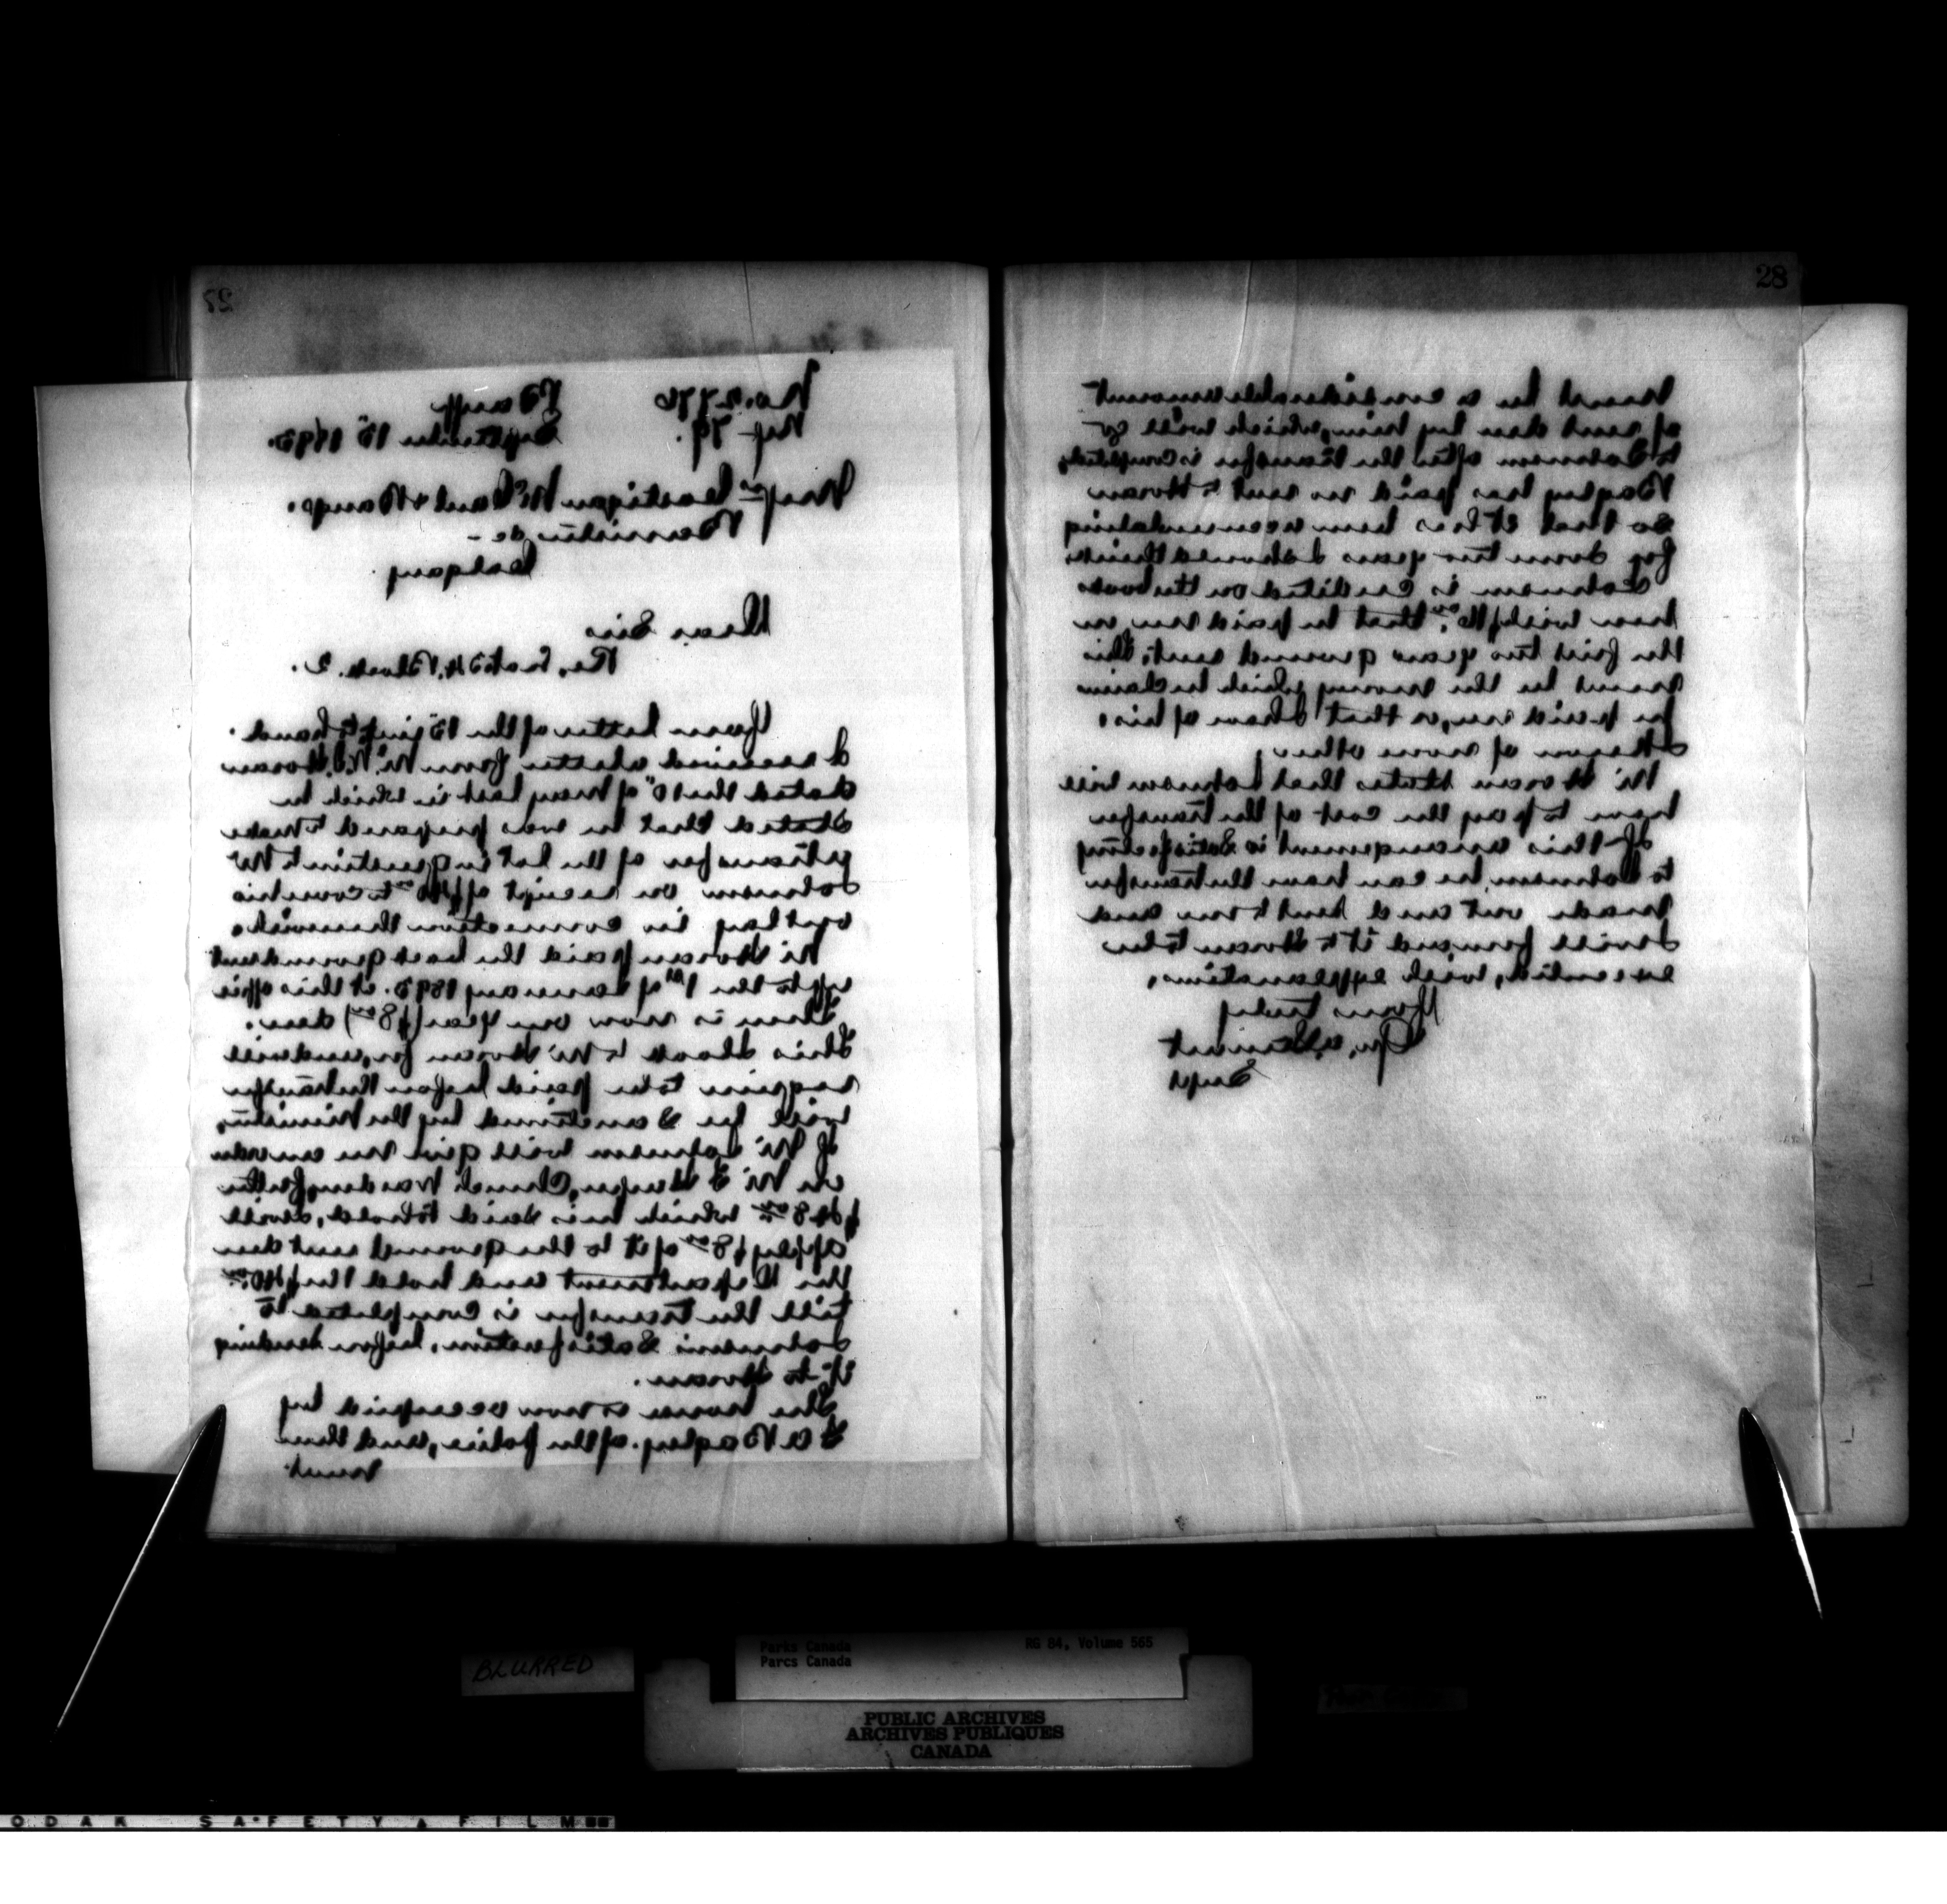 27
No. 2776
Ref 79.
Banff
September 15 1893.
Messrs Costigan McCaul & Bangs.
Barristers &c -
Calgary.
Dear Sirs
Re, Lot 3 Block. 2.
Your letter of the 12 inst to hand.
I received a letter from Mr Horan
dated the 10" of May last in which he
stated that he was prepared to make
transfer of the lot in question to Mr
Johnson on receipt of to cover his
outlay in connection therewith.
Mr Horan paid the last ground rent
up to the 1st of January 1893. at this office
There is now one year ($8.00) due.
This I look to Mr Horan for, and will
require to be paid before the transfer
will be sanctioned by the Minister,
If Mr Johnson will give me an order
on Mr Church Warden, for the
which he is said to hold, I will
apply $8.00 of it to the ground rent due
the Department and hold the
till the transfer is completed to
Johnson's Satisfaction, before sending
it to Horan.
The house is now occupied by
Bagley. of the police, and there
must
28
must be a considerable amount
of rent due by him, which will go
to Johnson after the transfer is completed,
Bagley has paid no rent to Horan
so that it has been accumulating
for some two years I should think.
Johnson is credited on the books
here with that he paid me on
the first two years ground rent, this
must be the money which he claims
he paid me, or that I have of his.
I know of none other
Mr Horan states that Johnson will
have to pay the cost of the transfer
If this arrangement is satisfactory
to Johnson, he can have the transfer
made out and sent to me and
I will forward it to Horan to be
executed, with explanations.
Yours truly
Stewart
Supt
BLURRED
Parks Canada
Parcs Canada
RG 84, Volume 565
PUBLIC ARCHIVES
ARCHIVES PUBLIQUES
CANADA
ODAK SAFETY FILM